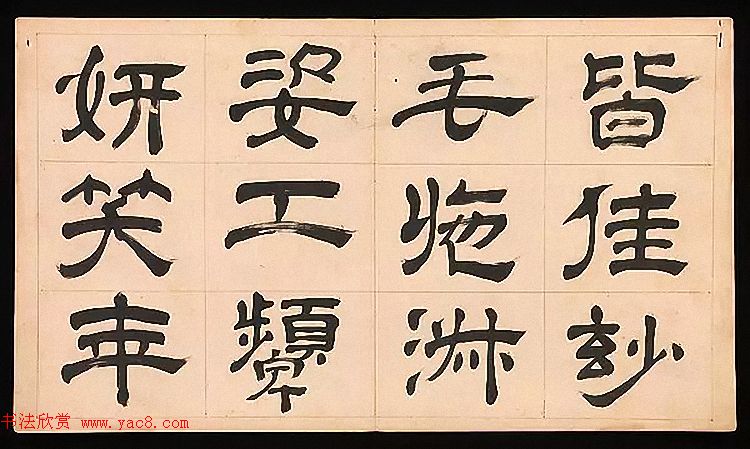 皆佳玅
毛施淑
姿工顰
妍笑年
书法欣赏 www.yac8.com